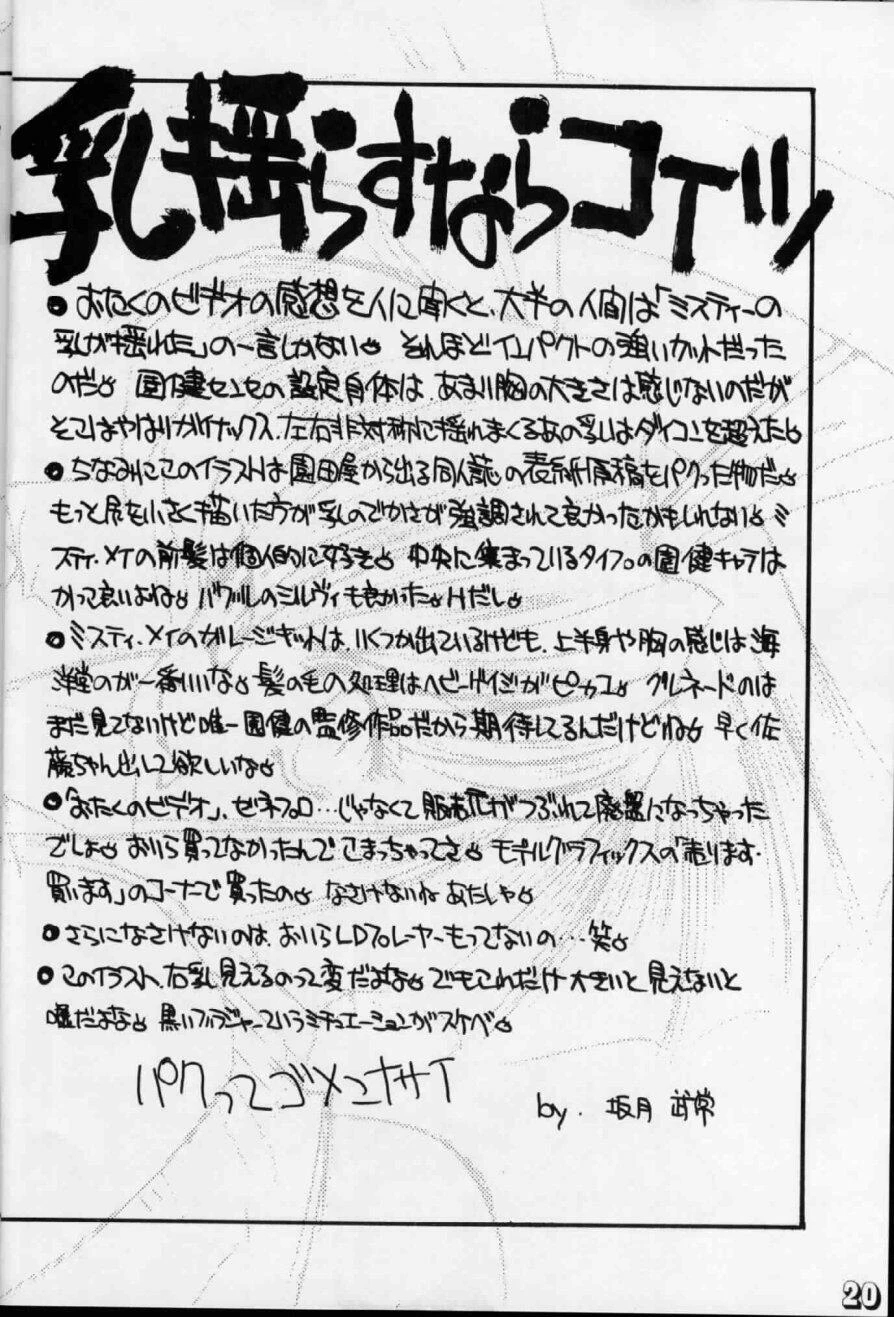 乳揺らすならコイツ
●おたくのビデオの感想を人に聞くと、大半の人間は「ミスティーの
乳が揺れた」の一言しかない。それほどインパクトの強いカットだった
のだ。園健センセの設定自体は、あまり胸の大きさは感じないのだが
そこはやはりガイナックス、左右非対称に揺れまくるあの乳はダイコンを超えた。
●ちなみにこのイラストは園田屋から出る同人誌の表紙原稿をパクった物だ。
もっと尻を小さく描いた方が乳のでかさが強調されて良かったかもしれない。ミ
スティ・メイの前髪は個人的に好き。中央に集まっているタイプの園健キャラは
かって良いよね。バウッルのシルヴィも良かった。Hだし。
●ミスティ・メイのガレージキットは、いくつか出ているけども、上半身や胸の感じは海
洋堂のが一番いいな。髪の毛の処理はヘビーゲイジがピカコ。グルネードのは
まだ見てないけど唯一園健の監修作品だから期待してるんだけどね。早く佐
藤ちゃん出して欲しいな。
●「おたくのビデオ」、ゼネプロ…じゃなくて販売元がつぶれて廃盤になっちゃった
でしょ。おいら買ってなかったんでこまっちゃってさ。モデルグラフィックスの「売ります・
買います」のコーナーで買ったの。なさけないねあたしゃ。
●さらになさけないのは、おいらLDプレーヤーもってないの…笑。
●このイラスト、右乳見えるのって変だよな。でもこれだけ大きいと見えないと
嘘だよな。黒いブラジャーっていうシチュエーションがスケベ。
パクってゴメンナサイ
by. 坂月 武常
20